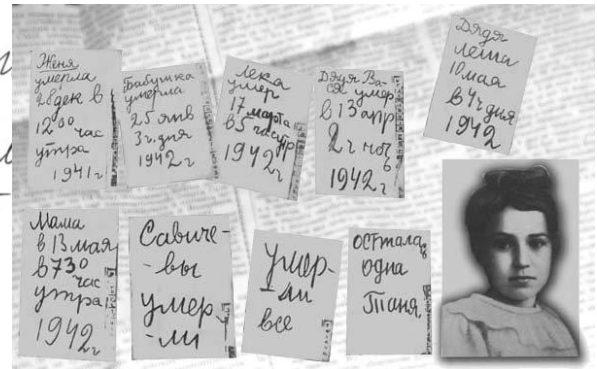 Женя
умерла
28 дек в
12 00 час
утра
1941 г
Бабушка
умерла
25 янв
3 ч. дня
1942 г
Лека
умер
17 марта
в 5 час утр
1942 г
Дядя Ва-
ся умер
в 13 апр
2 ч ноч
1942 г
Дядя
Леша
10 мая
в 4 ч дня
1942
Мама
в 13 мая
в 7 30
час
утра
1942 г
Савиче-
-вы
умер
-ли
Умер-
ли
все
Осталась
одна
Таня